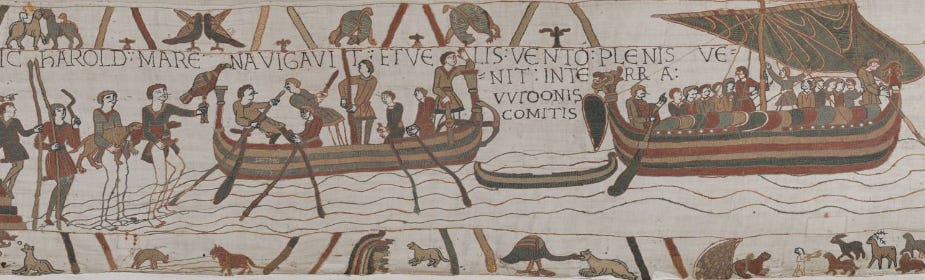 IC HAROLD: MARE NAVIGAVIT: ET VELIS: VENTO: PLENIS VE=
NIT: IN TERRA:
VVIDONIS
COMITIS